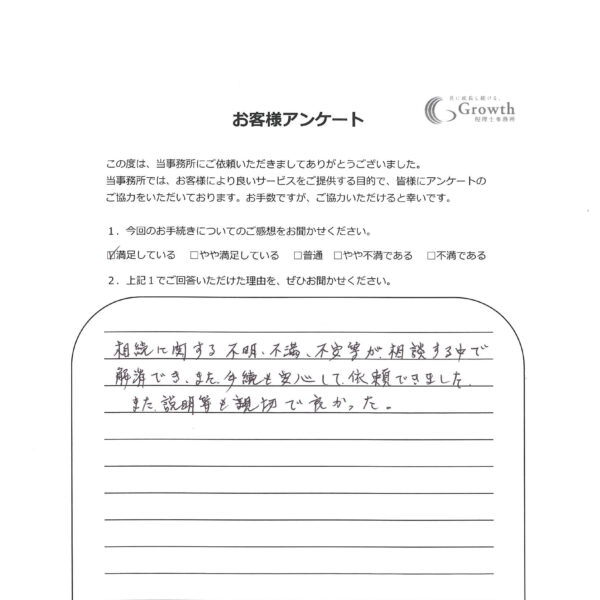 共に成長し続ける。
Growth
税理士事務所
お客様アンケート
この度は、当事務所にご依頼いただきましてありがとうございました。
当事務所では、お客様により良いサービスをご提供する目的で、皆様にアンケートの
ご協力をいただいております。お手数ですが、ご協力いただけると幸いです。
1．今回のお手続きについてのご感想をお聞かせください。
☑満足している □やや満足している □普通 □やや不満である □不満である
2．上記1でご回答いただけた理由を、ぜひお聞かせください。
相続に関する不明、不満、不安等が、相談する中で
解消でき、また、手続も安心して、依頼できました。
また、説明等も親切で良かった。